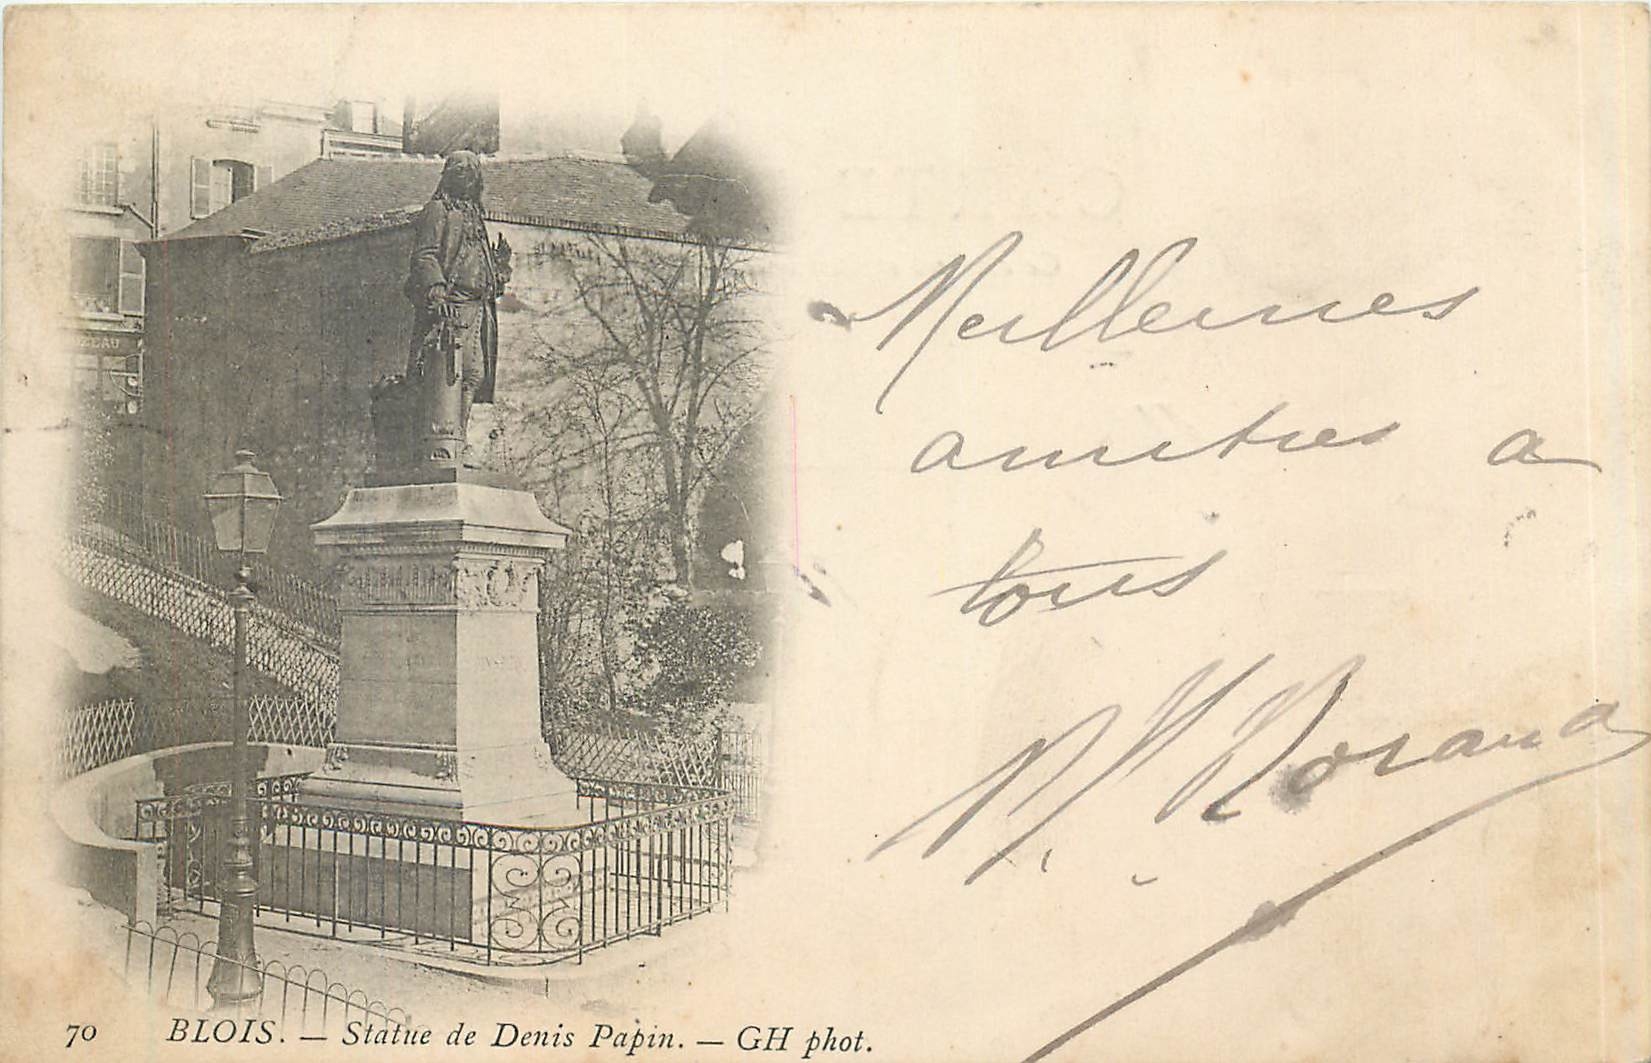 Meilleures
amitiés a
tous
Morand
70 BLOIS. — Statue de Denis Papin. — GH phot.